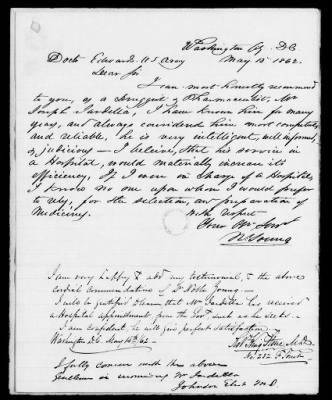 Washington City D.C
May 15th 1862.
Doct. Edwards. U.S. Army
Dear Sir
I can most honestly recommend
to you, as a Druggist & Pharmaceutist, Mr
Joseph Tardella, I have known him for many
years, and always considered him most competent,
and reliable, he is very intelligent, well informed,
& judicious — I believe, that his service in
a Hospital, would materially increase its
efficiency, If I were in Charge of a Hospital,
I know no one upon whom I would prefer
to rely, for the selection, and preparation of
Medicines.
With respect
Your Obt Servt
N. Young
I am very happy to add my testimonial, to the above
cordial commendation of Dr Noble Young —
I will be gratified to learn that Mr Tardella has secured
a hospital appointment from the Govt. such as he seeks.
I am confident, he will give perfect satisfaction.
Washington D.C. May 15th/62. —
No. 252 F Street
I fully concur with the above
Gentlemen in recommending Mr Tardella
Johnson Eliot M.D